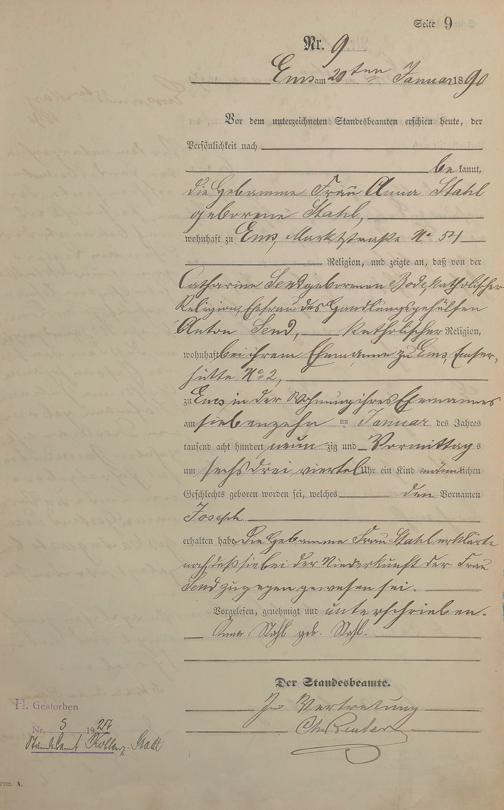 Seite 9
Nr. 9
Ems am 20ten Januar 1890
Vor dem unterzeichneten Standesbeamten erschien heute, der
Persönlichkeit nach
bekannt,
die Hebamme Frau Anna Stahl
geborene Stahl,
wohnhaft zu Ems, Marktstraße No 51
Religion, und zeigte an, daß von der
Catharine Send geborenen katholischer
Religion, Ehefrau des Handlungsgehülfen
Anton Send, katholischer Religion,
wohnhaft bei ihrem Ehemanne zu Ems, Emser-
hütte No 2,
zu Ems in der Wohnung ihres Ehemannes
am siebenzehn ten Januar des Jahres
tausend acht hundert neunzig und Vormittags
um sechs drei viertel Uhr ein Kind männlichen
Geschlechts geboren worden sei, welches den Vornamen
Joseph
erhalten habe. Die Hebamme Frau Stahl erklärte
noch, daß sie bei der Niederkunft der Frau
Send zugegen gewesen sei.
Vorgelesen, genehmigt und unterschrieben.
Anna Stahl geb. Stahl.
Der Standesbeamte.
In Vertretung
H. Gestorben
Nr. 5 1927
Standesamt Stadt
A.